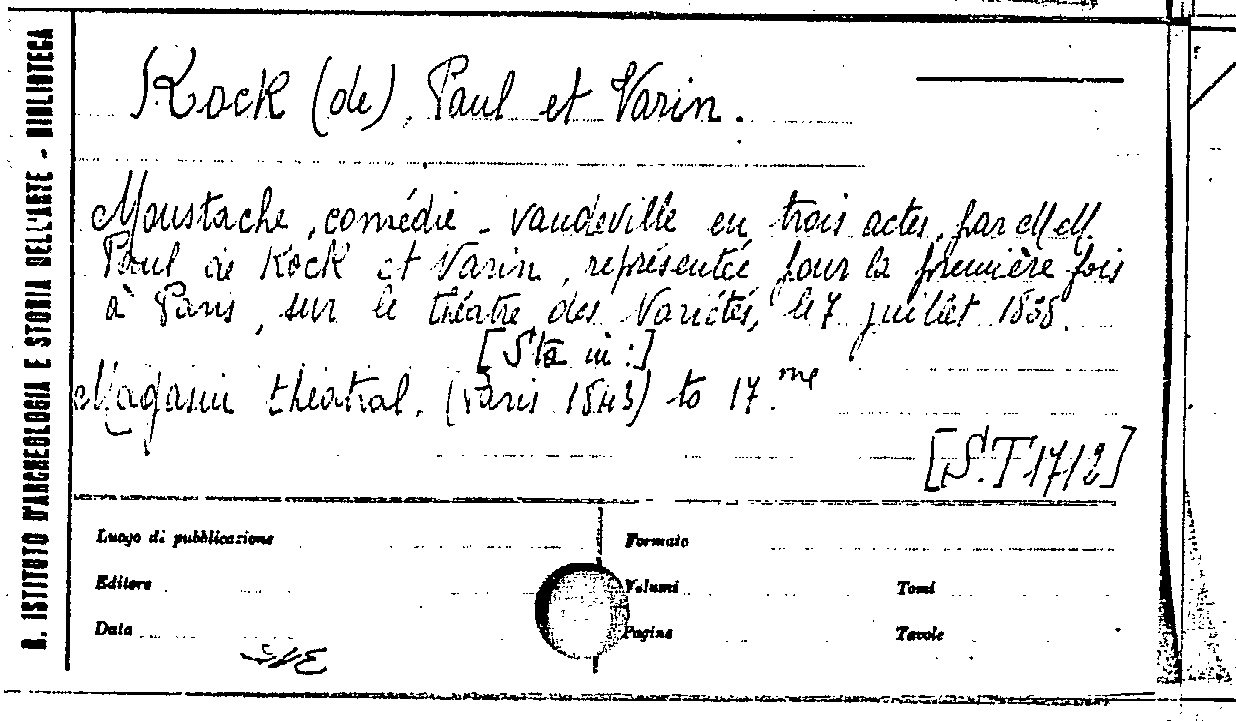 R. ISTITUTO D'ARCHEOLOGIA E STORIA DELL'ARTE - BIBLIOTECA
Kock (de), Paul et Varin.
Moustache, comédie - vaudeville en trois actes, par MM.
Paul de Kock et Varin, représentée pour la première fois
à Paris, sur le théatre des Variétés, le 7 juillet 1838.
[Sta in:]
Magasin théatral. (Paris 1843) to 17.me
[S.T 17/2]
Luogo di pubblicazione
Formato
Editore
Volumi
Tomi
Data
Pagine
Tavole